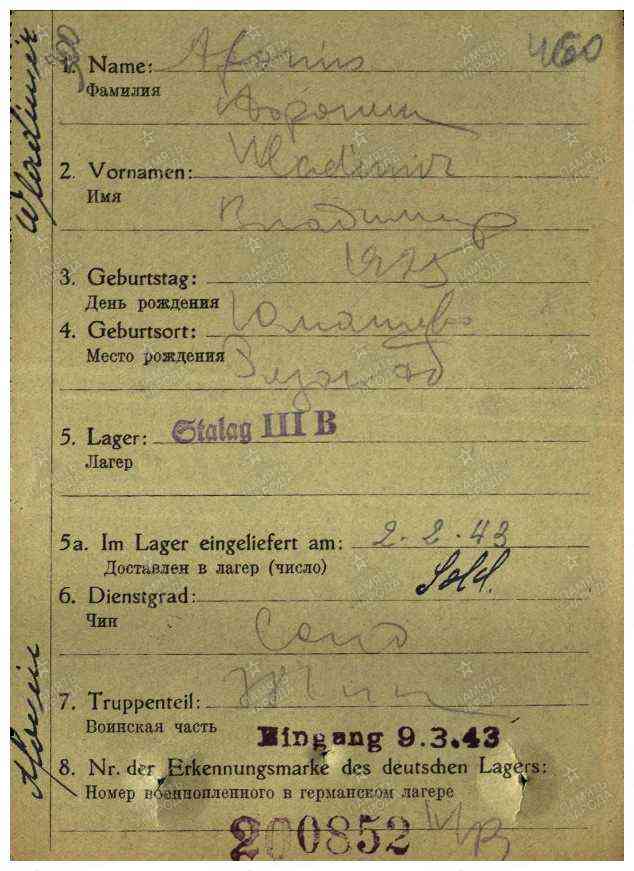 460
1. Name: Afonin
Фамилия
Афонин
2. Vornamen: Wladimir
Имя
Владимир
3. Geburtstag: 1925
День рождения
4. Geburtsort:
Место рождения
5. Lager: Stalag III B
Лагер
5a. Im Lager eingeliefert am: 2.2.43
Доставлен в лагер (число)
Sold.
6. Dienstgrad:
Чин
7. Truppenteil:
Воинская часть
Eingang 9.3.43
8. Nr. der Erkennungsmarke des deutschen Lagers:
Номер военнопленного в германском лагере
200852
Wladimir
Afonin